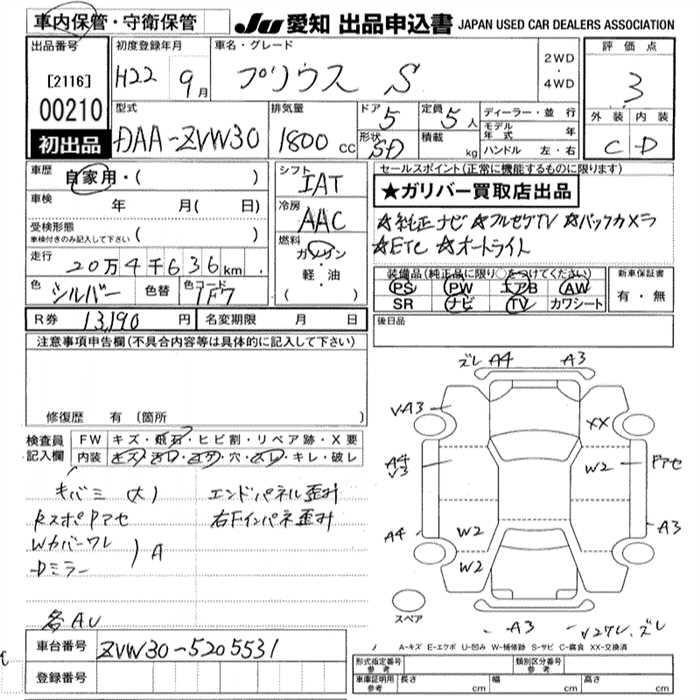 車内保管・守衛保管
JU 愛知 出品申込書 JAPAN USED CAR DEALERS ASSOCIATION
出品番号
[2116]
00210
初出品
初度登録年月
H22 9月
車名・グレード
プリウス S
2WD
・
4WD
評価点
3
外装 内装
C - D
型式
DAA-ZVW30
排気量
1800 CC
ドア 5
形状 SD
定員 5人
積載 kg
ディーラー・並 行
モデル年式 年
ハンドル 左・右
車歴 自家用・( )
車検 年 月( 日)
受検形態
車検付きのみ記入して下さい ( )
走行 20万4千636km
色 シルバー 色替 色コード 1F7
シフト
IAT
冷房
AAC
燃料
ガソリン
・
軽・油
( )
セールスポイント(正常に機能するものに限ります)
★ガリバー買取店出品
☆純正ナビ ☆フルセグTV ☆バックカメラ
☆ETC ☆オートライト
装備品(純正品に限り○をつけてください)
PS PW エアB AW
SR ナビ TV カワシート
新車保証書
有・無
R券 13,190円 名変期限 月 日
後日品
注意事項申告欄(不具合内容等は具体的に記入して下さい)
修復歴 有 (箇所 )
検査員記入欄
FW キズ・飛石・ヒビ割・リペア跡・X要
内装 キズ・汚れ・コゲ・穴・スレ・キレ・破レ
キバミ(大) エンドパネル歪み
RスポPアセ 右Fインパネ歪み
Wカバーワレ
Dミラー ) A
各AU
車台番号 ZVW30-5205531
登録番号
ズレ A4 A3
VA3
XX
A4
V3
W2
Pアセ
A4
W2
A3
W2
スペア
A3
V2ワレ.ズレ
A-キズ E-エクボ U-凹み W-補修跡 S-サビ C-腐食 XX-交換済
形式指定番号
参考
類別区分番号
参考
車庫証明用
参考
長さ cm 幅 cm 高さ cm